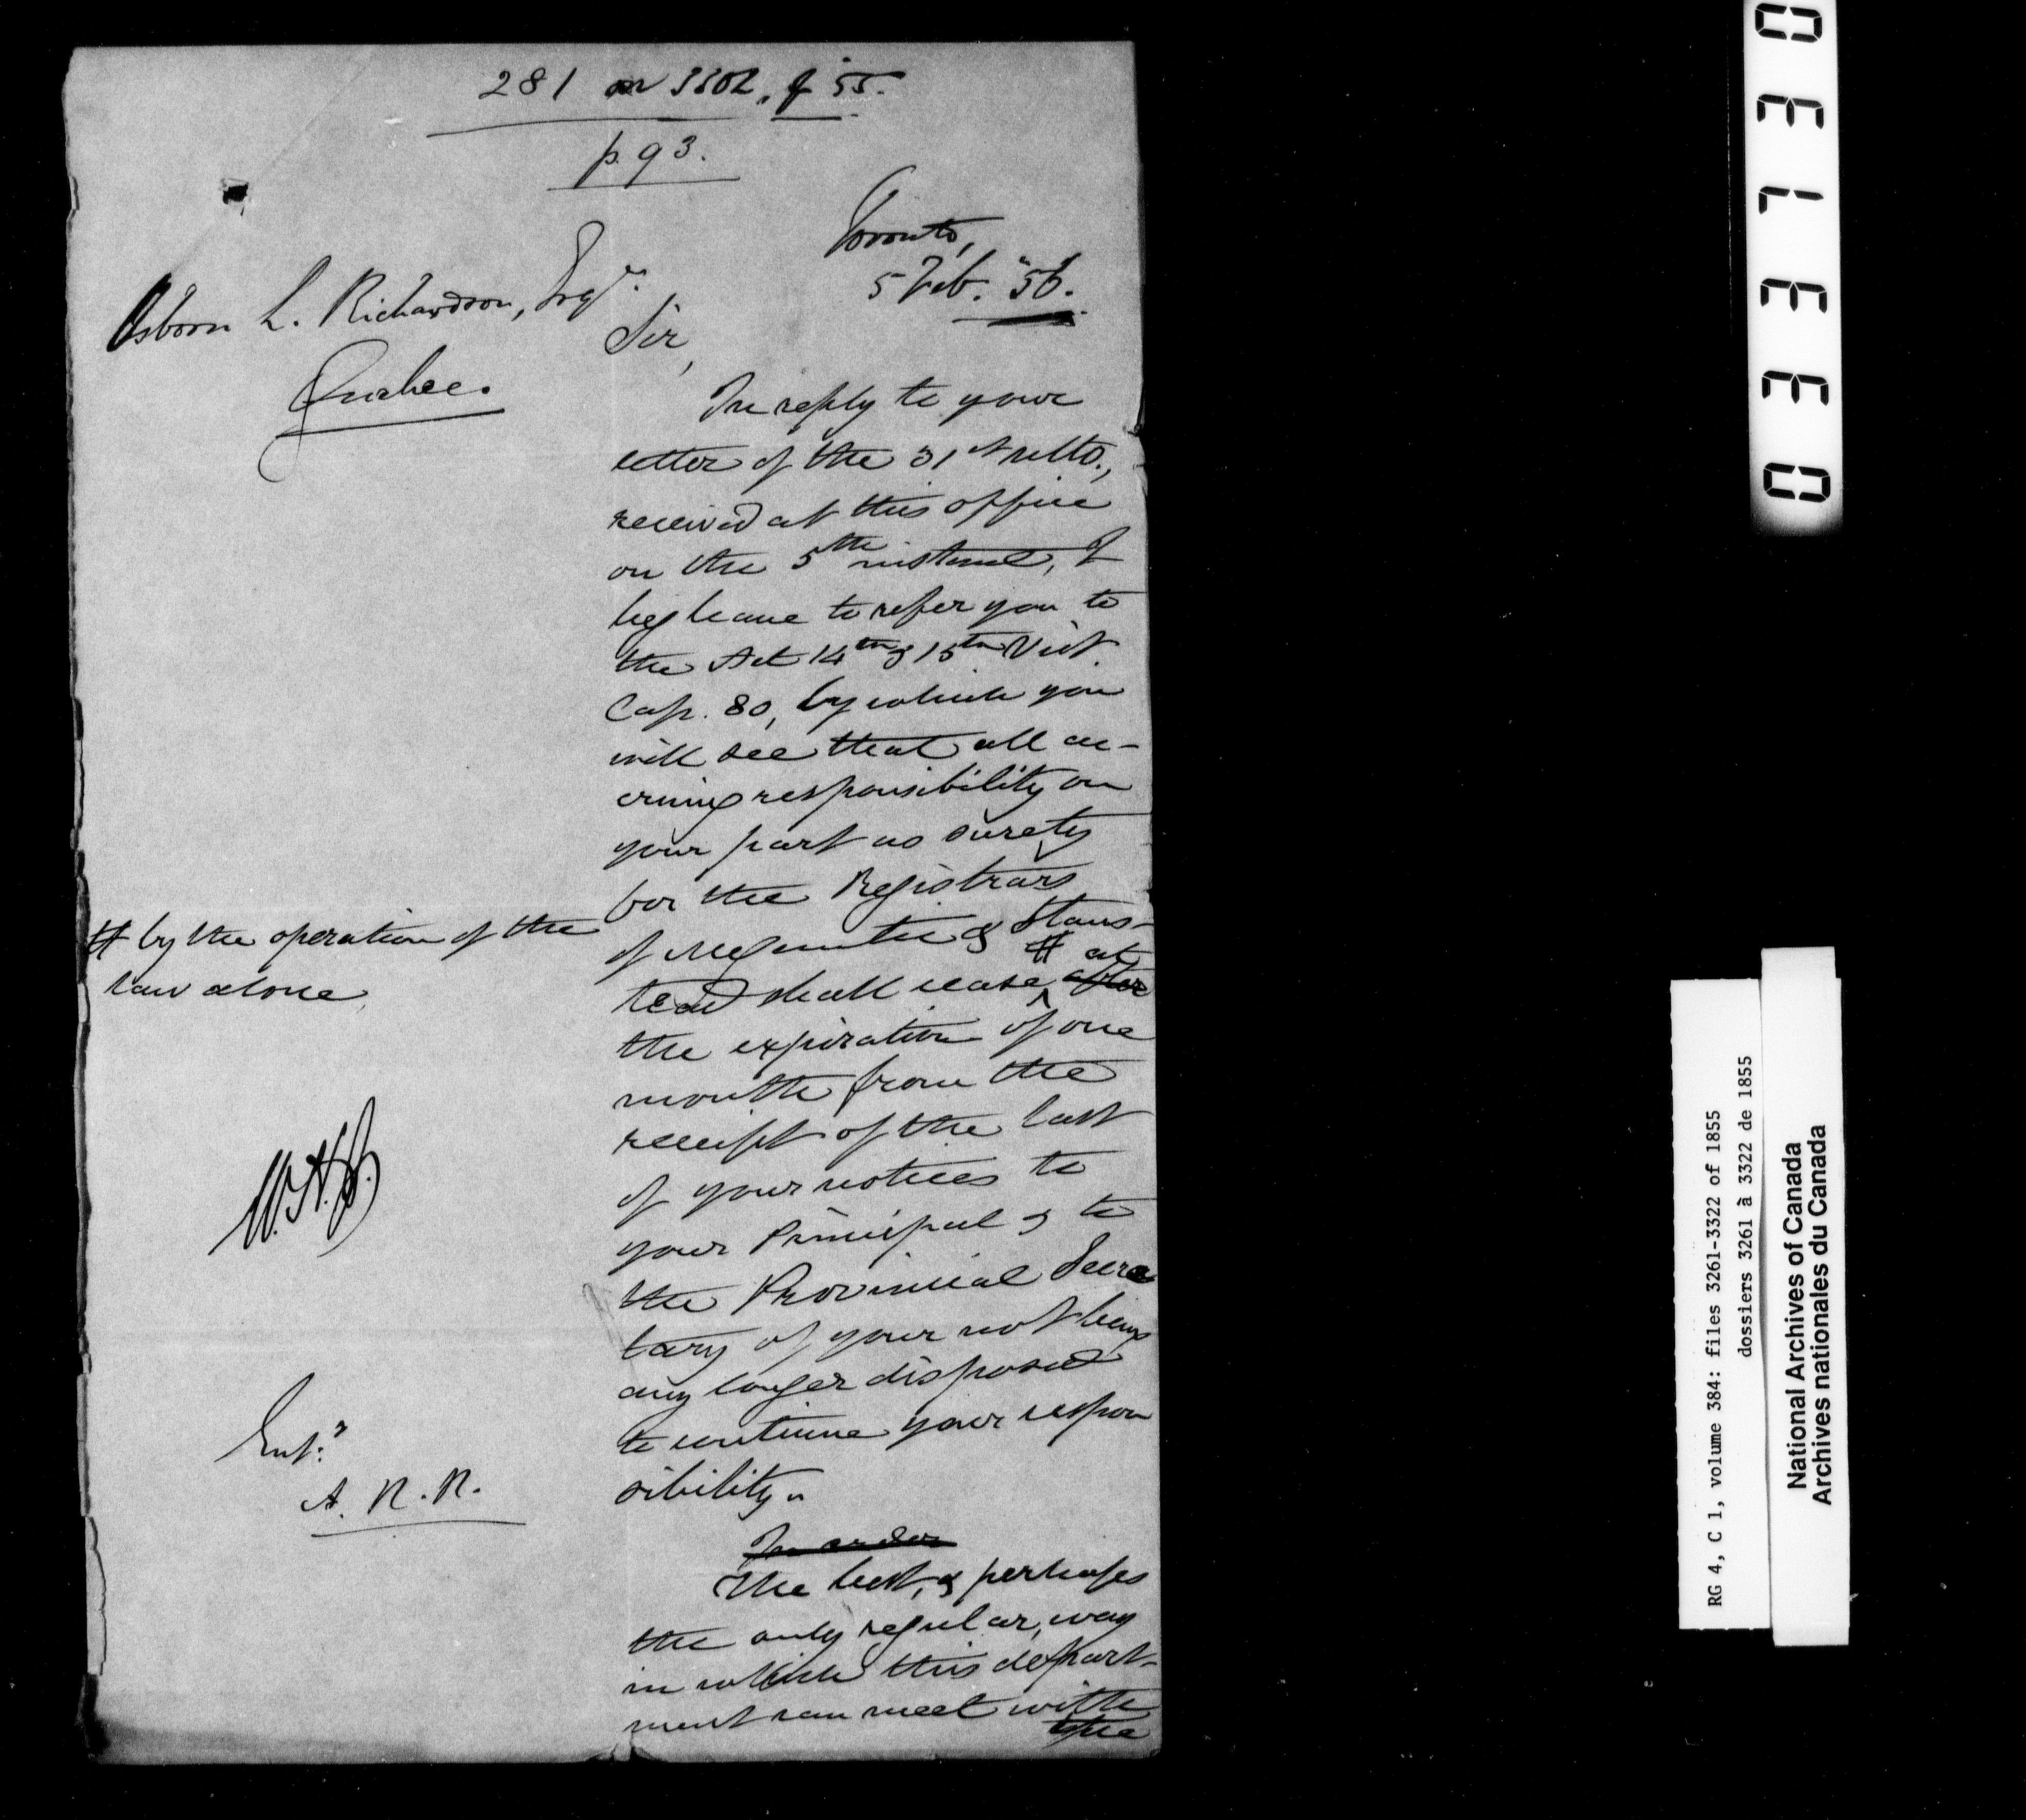 281 on 3302, of '55.
p. 93.
Toronto,
5 Feb. '56.
Osborn L. Richardson, Esqre.
Quebec.
Sir,
In reply to your
letter of the 31st ulto.,
received at this office
on the 5th instant, I
beg leave to refer you to
the Act 14th & 15th Vict.
Cap. 80, by which you
will see that all ac-
cruing responsibility on
your part as surety
for the Registrars
of Megantic & Stans-
tead shall cease # at after
# by the operation of the
law alone,
the expiration of one
month from the
receipt of the last
of your notices to
your Principal & to
the Provincial Secre
tary of your not being
any longer disposed
to continue your respon
sibility.
In order
The best, & perhaps
the only regular, way
in which this depart-
ment can meet with
the
Ent.d
A. R. R.
0 3 3 1 3 0
RG 4, C 1, volume 384: files 3261-3322 of 1855
dossiers 3261 à 3322 de 1855
National Archives of Canada
Archives nationales du Canada